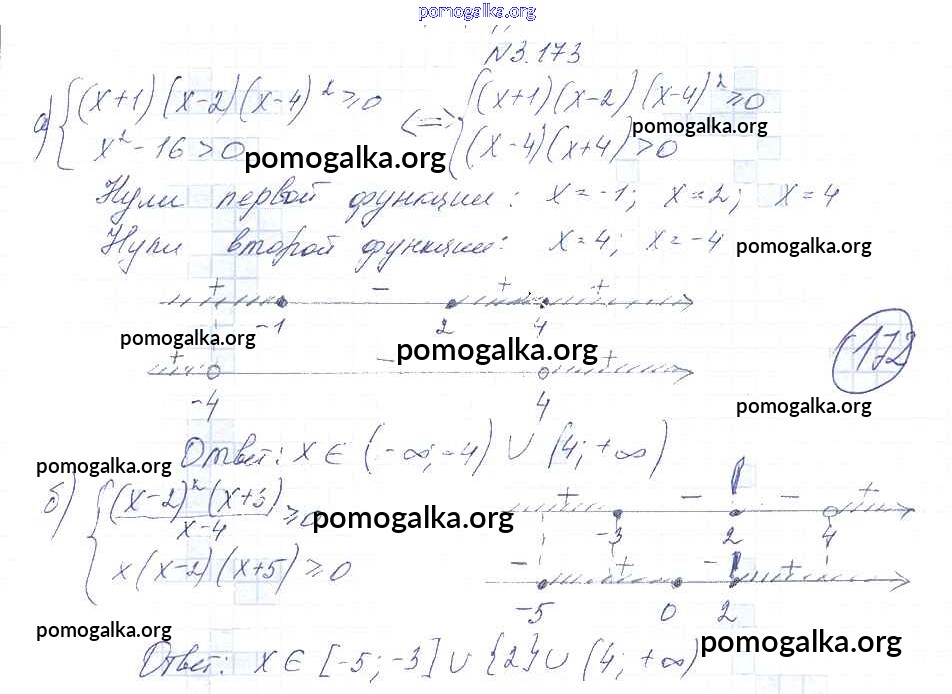 pomogalka.org
N3.173
а) { (x+1)(x-2)(x-4)² ≥ 0 <=> { (x+1)(x-2)(x-4)² ≥ 0
pomogalka.org
x² - 16 > 0 (x-4)(x+4) > 0
pomogalka.org
Нули первой функции: x = -1; x = 2; x = 4
Нули второй функции: x = 4; x = -4
pomogalka.org
+ - + +
-1 2 4
pomogalka.org
pomogalka.org
172
+ - +
-4 4
pomogalka.org
Ответ: x ∈ (-∞; -4) ∪ (4; +∞)
pomogalka.org
б) { (x-2)²(x+3) / x-4 ≥ 0
pomogalka.org
+ - - +
-3 2 4
x(x-2)(x+5) ≥ 0
- + - +
-5 0 2
pomogalka.org
pomogalka.org
Ответ: x ∈ [-5; -3] ∪ {2} ∪ (4; +∞)